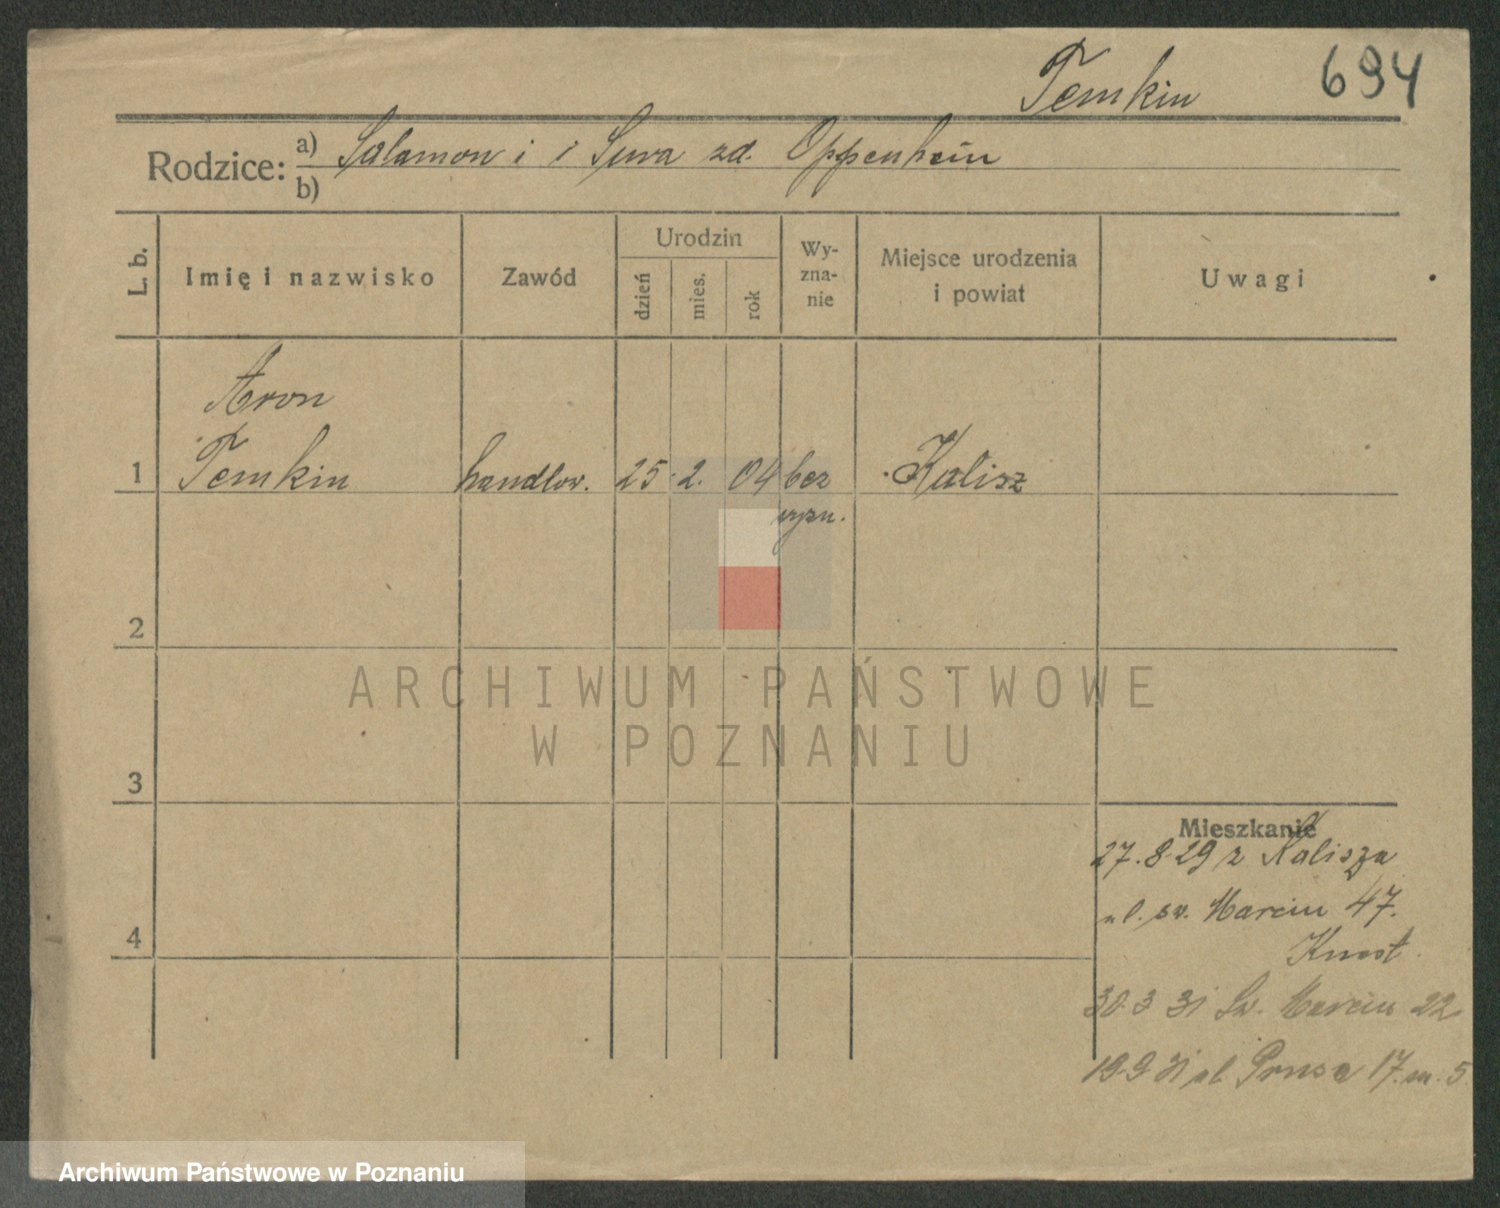 Temkin 694
Rodzice: a) Salamon i i Sura zd. Oppenheim
b)
L. b. Imię i nazwisko Zawód Urodzin dzień mies. rok Wyznanie Miejsce urodzenia i powiat Uwagi
Aron
1 Temkin handlow. 25. 2. 04 bez Kalisz
wyzn.
2
ARCHIWUM PAŃSTWOWE
W POZNANIU
3
Mieszkanie
27.8.29 z Kalisza
4 ul. św. Marcin 47.
30.3 31 Św. Marcin 22
19.9 31 ul. Prusa 17. m. 5
Archiwum Państwowe w Poznaniu